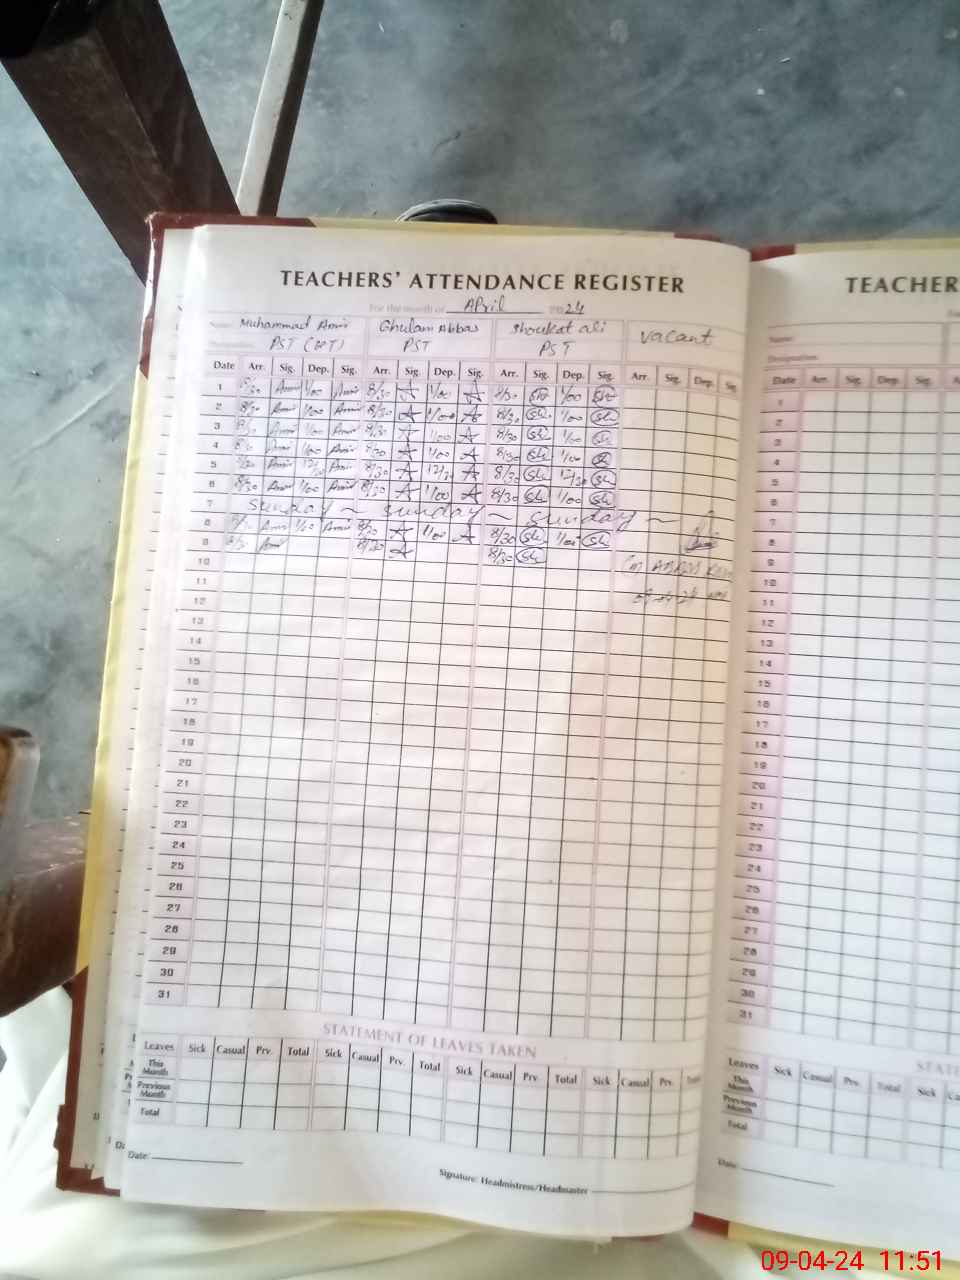 TEACHERS' ATTENDANCE REGISTER TEACHER
For the month of April 2024
Name: Muhammad Amir Ghulam Abbas Shoukat ali vacant Name:
Designation: PST PST PST Designation:
Date Arr. Sig. Dep. Sig. Arr. Sig. Dep. Sig. Arr. Sig. Dep. Sig. Arr. Sig. Dep. Sig. Date Arr. Sig. Dep. Sig. A
1 8/30 Amir 1/00 Amir 8/30 1/00 8/30 Sh 1/00 Sh 1
2 8/30 Amir 1/00 Amir 8/30 1/00 8/30 Sh 1/00 Sh 2
3 8/30 Amir 1/00 Amir 8/30 1/00 8/30 Sh 1/00 Sh 3
4 8/30 Amir 1/00 Amir 8/30 1/00 8/30 Sh 1/00 4
5 8/30 Amir 12/30 Amir 8/30 12/30 8/30 Sh 12/30 Sh 5
6 8/30 Amir 1/00 Amir 8/30 1/00 8/30 Sh 1/00 Sh 6
7 Sunday ~ Sunday ~ Sunday ~ 7
8 8/30 Amir 1/00 Amir 8/30 1/00 8/30 Sh 1/00 Sh 8
9 8/30 Amir 8/30 8/30 Sh 9
10 10
11 11
12 12
13 13
14 14
15 15
16 16
17 17
18 18
19 19
20 20
21 21
22 22
23 23
24 24
25 25
26 26
27 27
28 28
29 29
30 30
31 31
STATEMENT OF LEAVES TAKEN STATE
Leaves Sick Casual Prv. Total Sick Casual Prv. Total Sick Casual Prv. Total Sick Casual Prv. Leaves Sick Casual Prv. Total Sick Ca
This Month This Month
Previous Month Previous Month
Total Total
Date: Date:
Signature: Headmistress/Headmaster
09-04-24 11:51